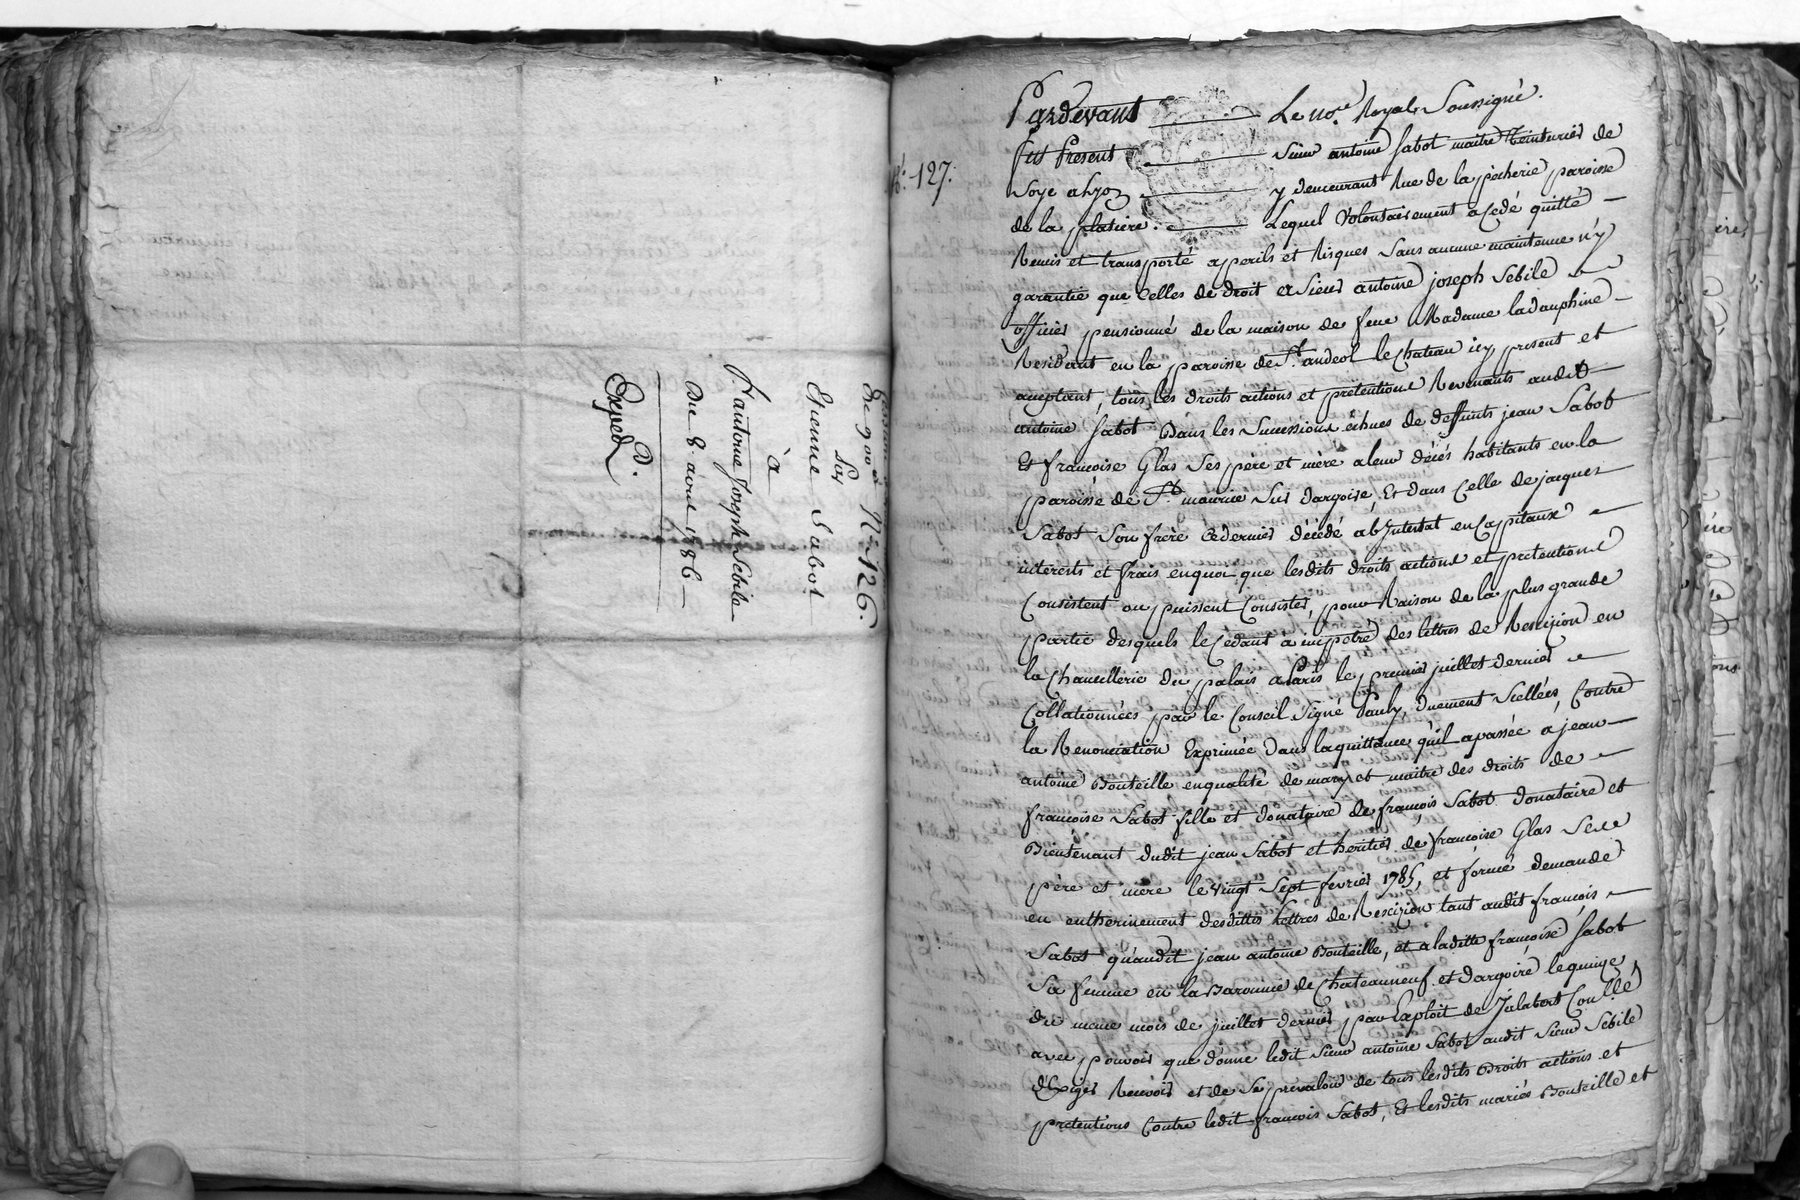 de 900 # N.° 126.
Par
Etienne Sabot
à
S. antoine Joseph Sebile
Du 8. avril 1786
Exped.
N.° 127.
Pardevant Le no.re Royal Soussigné.
fut Present Sieur antoine Sabot maitre Teinturier de
Soye a Lyon y demeurant Rue de la pècherie paroisse
de la platiere. Lequel Volontairement a cedé quitté
Remis et transporté a perils et Risques Sans aucune maintenue n'y
garantie que Celles de droit a Sieur antoine joseph Sebile
officier pensionné de la maison de feue Madame la dauphine
Residant en la paroisse de St. andeol le Chateau icy present et
aceptant, tous les droits actions et pretentions Revenants audit
antoine Sabot Dans les Successions échues de deffunts jean Sabot
Et francoise Glas Ses père et mère a leur décés habitants en la
paroisse de St. maurice Sur dargoire, Et dans Celle de jacques
Sabot Son frère Ce dernier décédé ab Intestat en Capitaux
interests et frais en quoi que lesdits droits actions et pretentions
Consistent ou puissent Consister, pour Raison de la plus grande
partie desquels le Cedant a impetré des lettres de Rescizion en
la Chancellerie du palais a Paris le premier juillet dernier
Collationnées par le Conseil Signé Pauly, duement Scellées, Contre
la Renonciation Exprimée dans la quittance qu'il a passée a jean
antoine Bouteille en qualité de mary et maitre des droits de
francoise Sabot fille et donataire de francois Sabot donataire et
Bientenant dudit jean Sabot et heritier de francoise Glas Ses
père et mere le vingt Sept fevrier 1785, et formé demande
en entherinement desdittes Lettres de Rescizion tant audit francois
Sabot qu'audit jean antoine Bouteille, et a laditte francoise Sabot
Sa femme en la Baronnie de Chateauneuf et dargoire le quinze
du meme mois de juillet dernier par Exploit de Jalabert Conllé
avec pouvoir que donne ledit Sieur antoine Sabot audit Sieur Sebile
d'Exiger Recevoir et de Se prevaloir de tous lesdits Droits actions et
pretentions Contre ledit francois Sabot, Et lesdits mariés Bouteille et